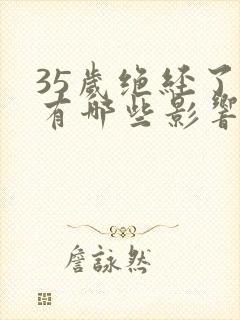 35歲绝経了
有哪些影響
詹詠然